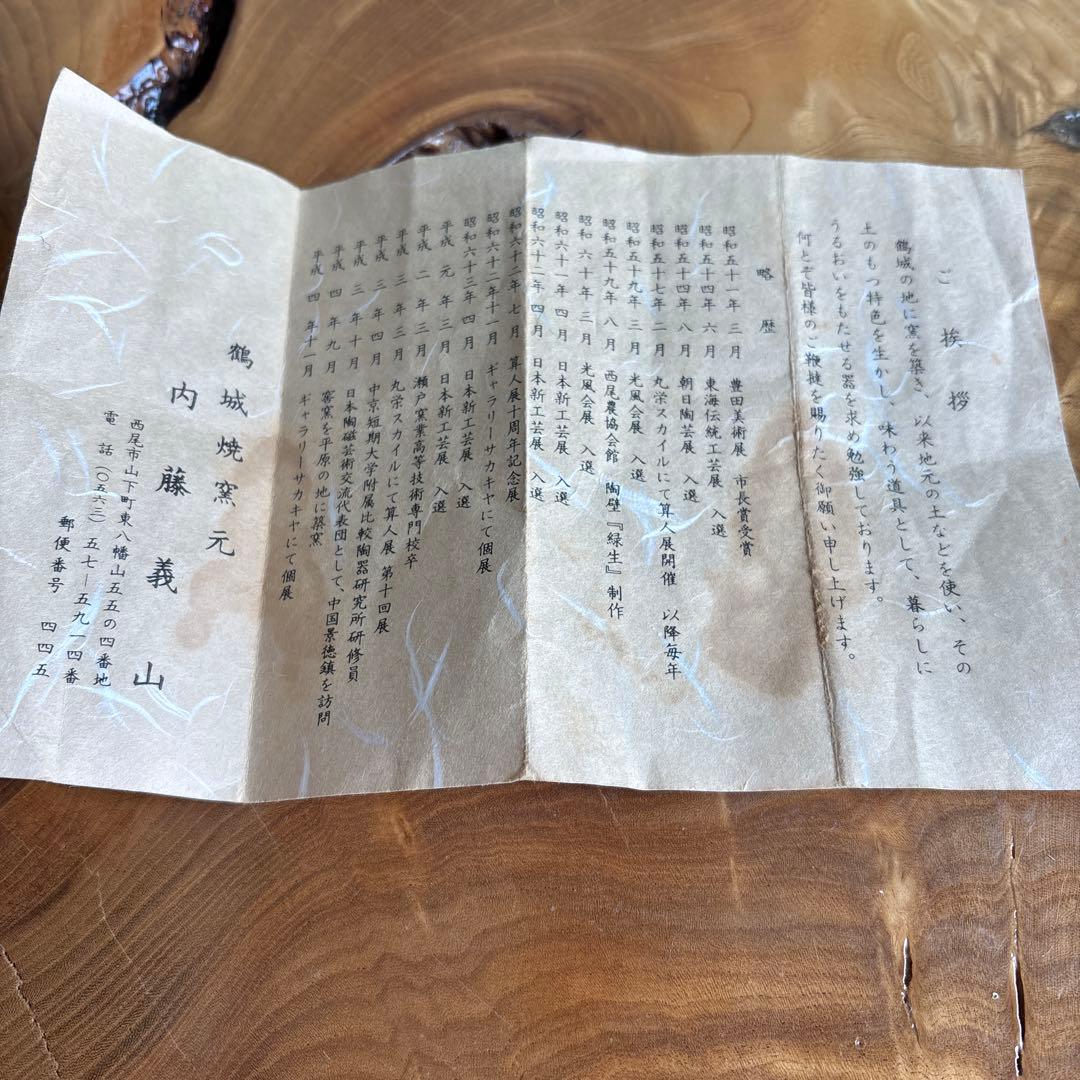 ご挨拶
鶴城の地に窯を築き、以来地元の土などを使い、その
土のもつ特色を生かし、味わう道具として、暮らしに
うるおいをもたせる器を求め勉強しております。
何とぞ皆様のご鞭撻を賜りたく御願い申し上げます。
略歴
昭和五十一年 三月 豊田美術展 市長賞受賞
昭和五十四年 六月 東海伝統工芸展 入選
昭和五十四年 八月 朝日陶芸展 入選
昭和五十七年 二月 丸栄スカイルにて算人展開催 以降毎年
昭和五十九年 三月 光風会展 入選
昭和五十九年 八月 西尾農協会館 陶壁『緑生』制作
昭和六十年 三月 光風会展 入選
昭和六十一年 四月 日本新工芸展 入選
昭和六十二年 四月 日本新工芸展 入選
昭和六十二年 七月 算人展十周年記念展
昭和六十二年十一月 ギャラリーサカキヤにて個展
昭和六十三年 四月 日本新工芸展 入選
平成 元 年 三月 日本新工芸展 入選
平成 二 年 三月 瀬戸窯業高等技術専門校卒
平成 三 年 三月 丸栄スカイルにて算人展 第十回展
平成 三 年 四月 中京短期大学附属比較陶器研究所研修員
平成 三 年 十月 日本陶磁芸術交流代表団として、中国景徳鎮を訪問
平成 四 年 九月 窖窯を平原の地に築窯
平成 四 年十一月 ギャラリーサカキヤにて個展
鶴城焼窯元
内藤義山
西尾市山下町東八幡山五五の四番地
電話(〇五六三)五七―五九一四番
郵便番号 四四五